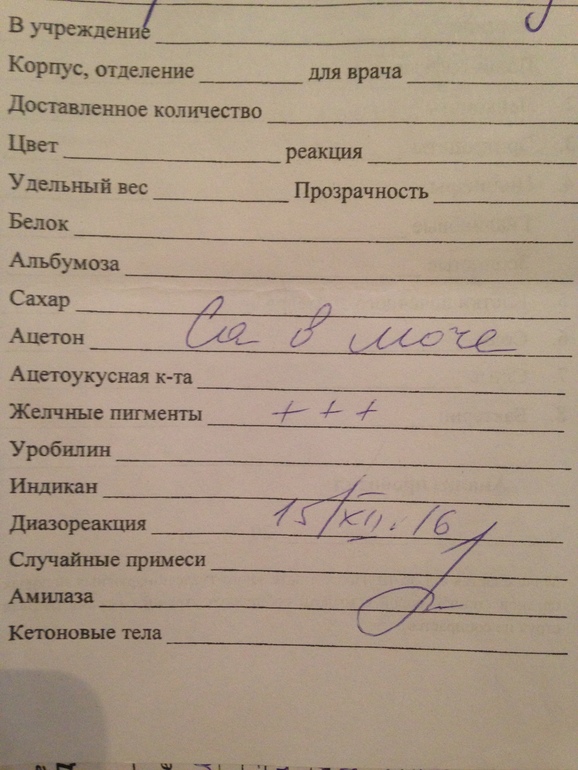 В учреждение
Корпус, отделение для врача
Доставленное количество
Цвет реакция
Удельный вес Прозрачность
Белок
Альбумоза
Сахар
Ацетон Ca в моче
Ацетоуксусная к-та
Желчные пигменты +++
Уробилин
Индикан
Диазореакция 15/XII.16
Случайные примеси
Амилаза
Кетоновые тела